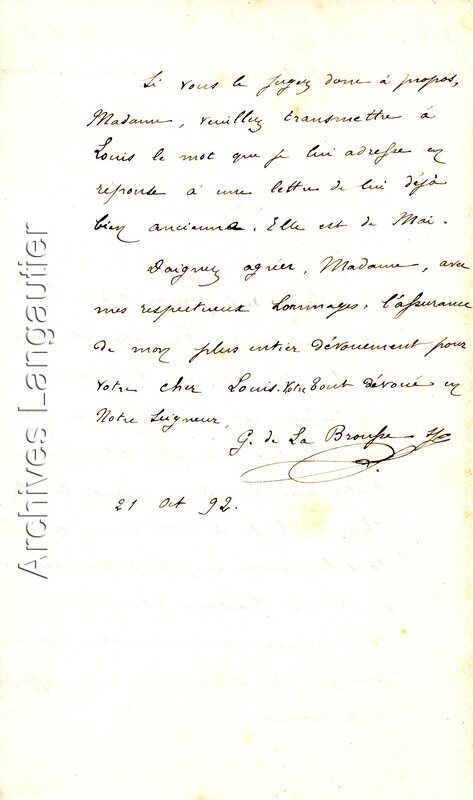 Si vous le jugez donc à propos,
Madame, veuillez transmettre à
Louis le mot que je lui adresse en
réponse à une lettre de lui déjà
bien ancienne. Elle est de Mai.
Daignez agréer, Madame, avec
mes respectueux hommages, l'assurance
de mon plus entier dévouement pour
votre cher Louis. Votre tout dévoué en
Notre Seigneur,
G. de La Brousse
21 Oct 92.
Archives Langautier